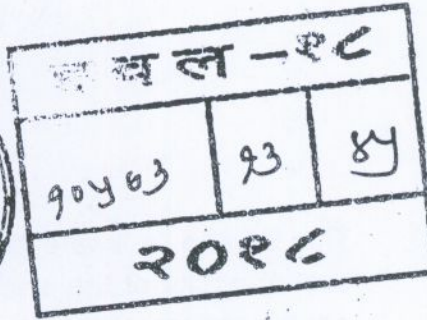 हवल -१८
१०५७३ १३ ४५
२०१८